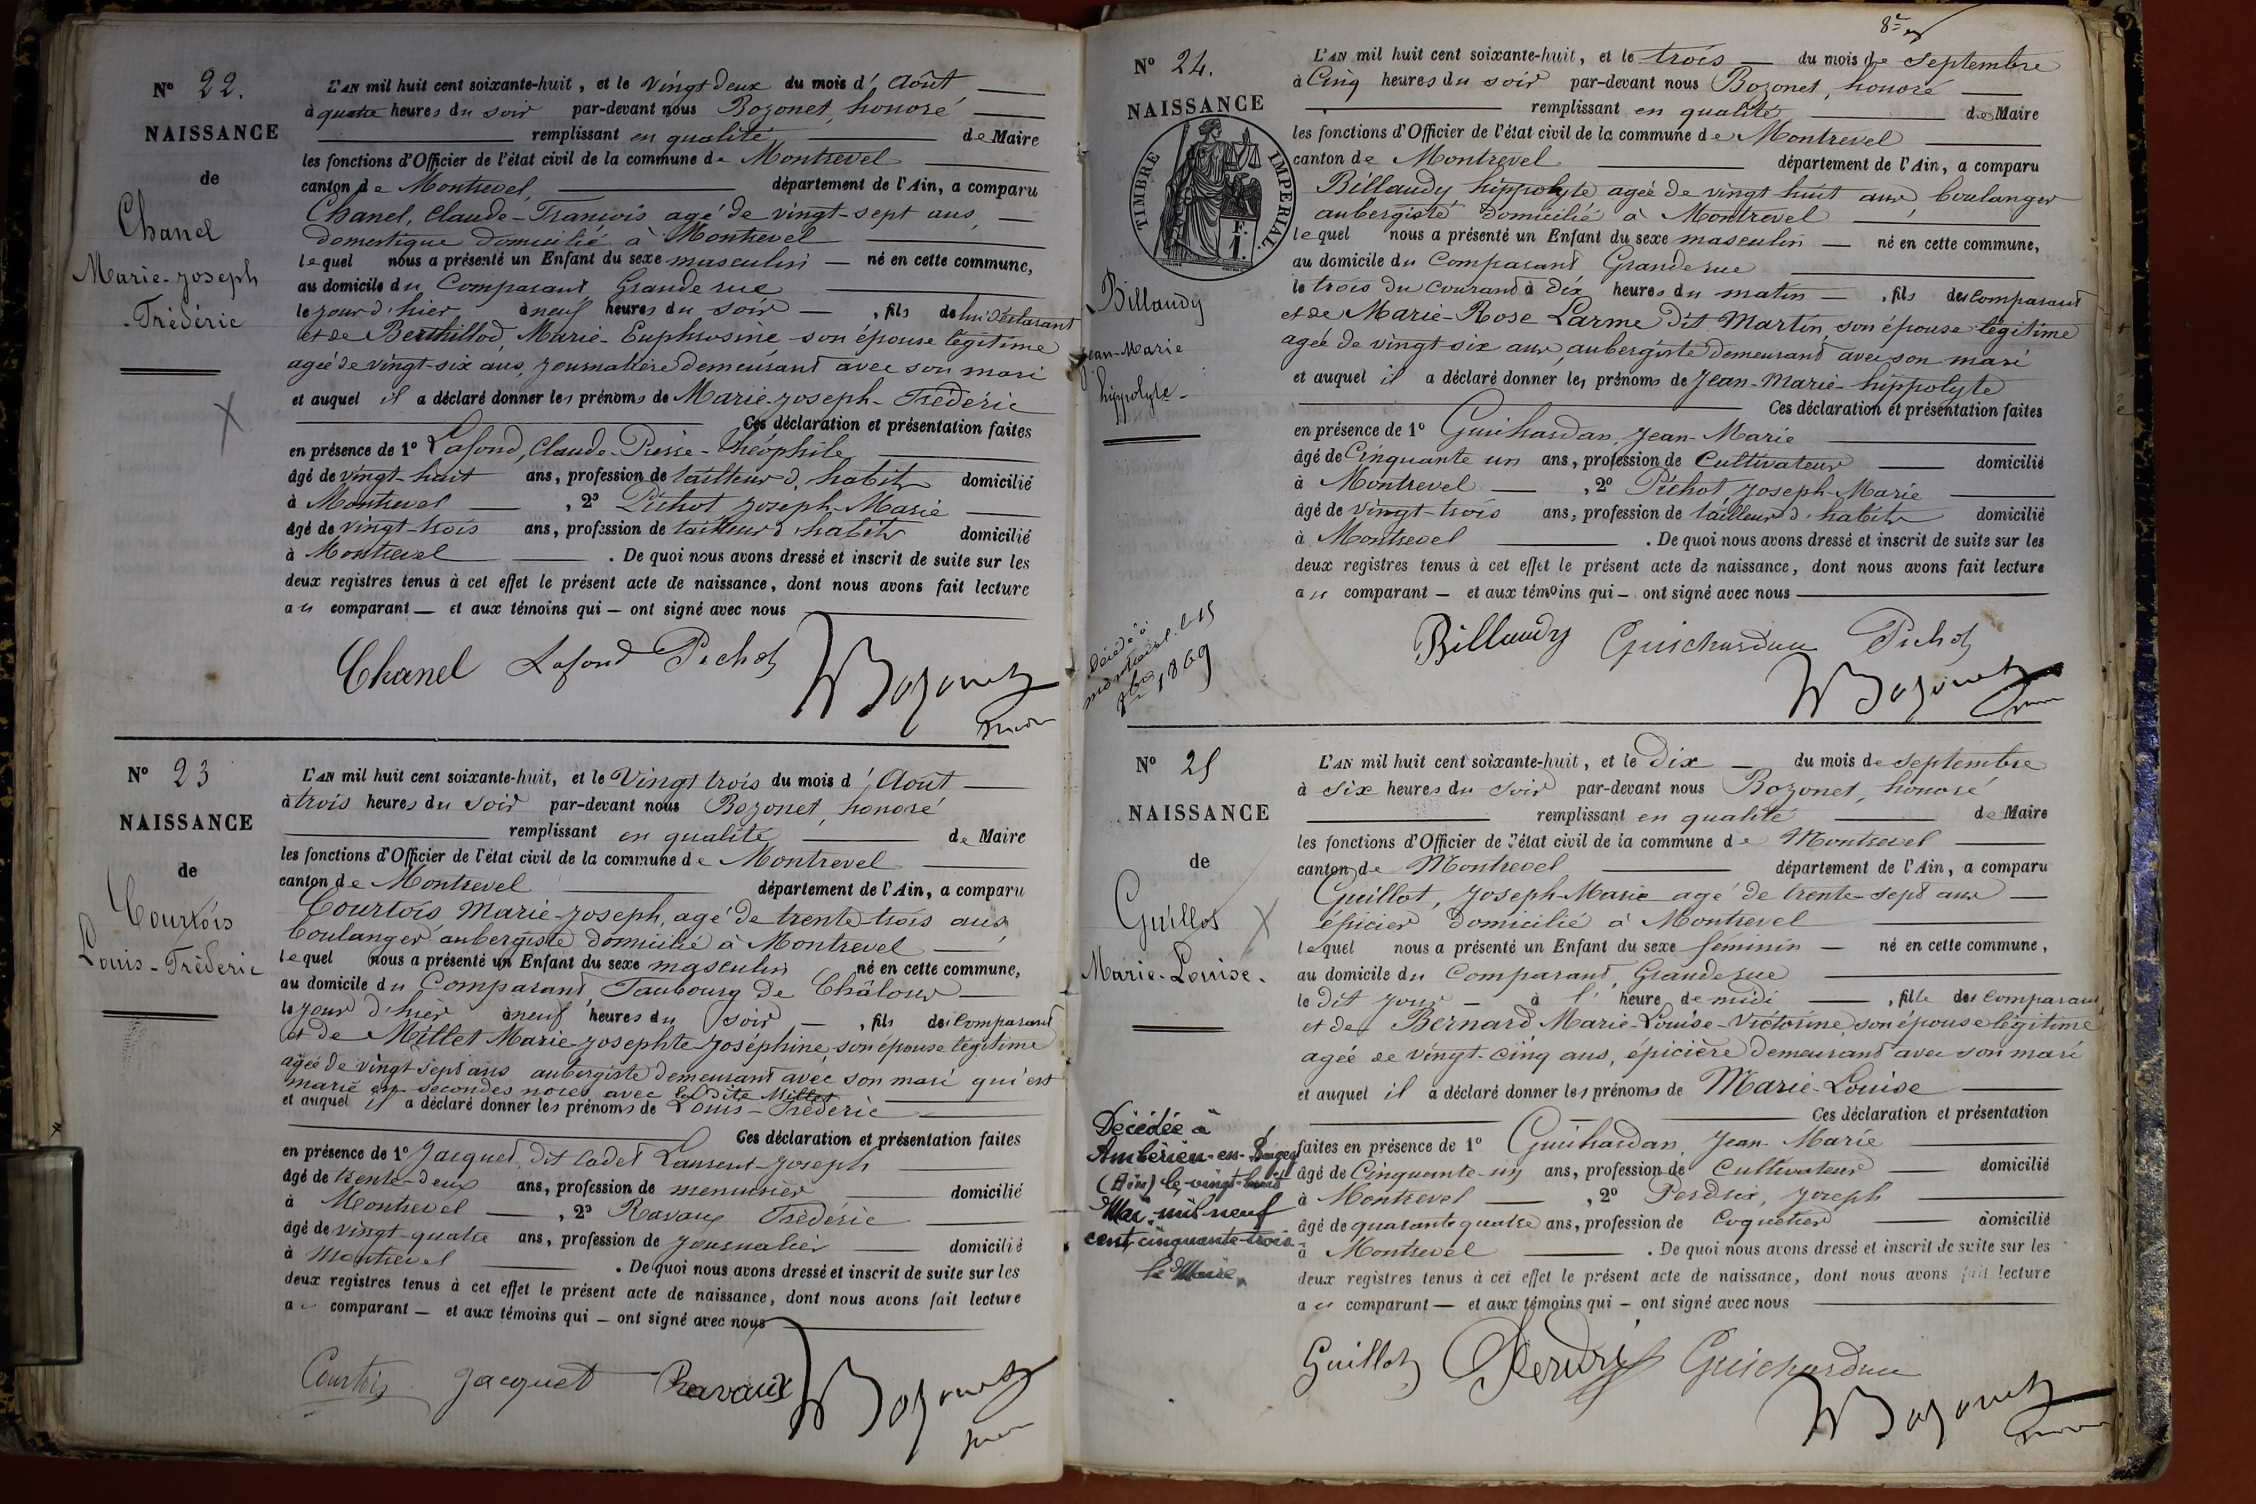 N° 22.
NAISSANCE
de
Chanel
Marie-Joseph
-Frédéric
L'AN mil huit cent soixante-huit, et le Vingt deux du mois d' Août
à quatre heures du soir par-devant nous Bozonet, honoré
remplissant en qualité de Maire
les fonctions d'Officier de l'état civil de la commune de Montrevel
canton de Montrevel département de l'Ain, a comparu
Chanel, Claude-François agé de vingt-sept ans,
domestique domicilié à Montrevel
lequel nous a présenté un Enfant du sexe masculin né en cette commune,
au domicile du Comparant Grande rue
le jour d'hier à neuf heures du soir, fils de lui déclarant
et de Berthillod, Marie-Euphrosine son épouse légitime
agée de vingt-six ans, journalière demeurant avec son mari
et auquel il a déclaré donner les prénoms de Marie-Joseph-Frédéric
Ces déclaration et présentation faites
en présence de 1° Lafond, Claude-Pierre-Théophile
âgé de vingt-huit ans, profession de tailleur d'habits domicilié
à Montrevel, 2° Pichot Joseph-Marie
âgé de vingt-trois ans, profession de tailleur d'habits domicilié
à Montrevel. De quoi nous avons dressé et inscrit de suite sur les
deux registres tenus à cet effet le présent acte de naissance, dont nous avons fait lecture
au comparant — et aux témoins qui — ont signé avec nous
Chanel Lafond Pichot Bozonet
N° 23
NAISSANCE
de
Courtois
Louis-Frédéric
L'AN mil huit cent soixante-huit, et le Vingt trois du mois d' Août
à trois heures du soir par-devant nous Bozonet, honoré
remplissant en qualité de Maire
les fonctions d'Officier de l'état civil de la commune de Montrevel
canton de Montrevel département de l'Ain, a comparu
Courtois Marie-Joseph, agé de trente-trois ans
boulanger aubergiste domicilié à Montrevel
lequel nous a présenté un Enfant du sexe masculin né en cette commune,
au domicile du Comparant, Faubourg de Châlons
le jour d'hier à neuf heures du soir, fils du Comparant
et de Millet Marie-Josephte-Joséphine, son épouse légitime
agée de vingt sept ans aubergiste demeurant avec son mari qui est
marié en secondes noces avec la dite Millet
et auquel il a déclaré donner les prénoms de Louis-Frédéric
Ces déclaration et présentation faites
en présence de 1° Jacquet dit Cadet Laurent-Joseph
âgé de trente-deux ans, profession de menuisier domicilié
à Montrevel, 2° Ravaux Frédéric
âgé de vingt-quatre ans, profession de journalier domicilié
à Montrevel. De quoi nous avons dressé et inscrit de suite sur les
deux registres tenus à cet effet le présent acte de naissance, dont nous avons fait lecture
au comparant — et aux témoins qui — ont signé avec nous
Courtois Jacquet Ravaux Bozonet
N° 24.
NAISSANCE
TIMBRE IMPERIAL.
F.
1.
Billaudy
Jean-Marie
hippolyte-
L'AN mil huit cent soixante-huit, et le trois du mois de septembre
à Cinq heures du soir par-devant nous Bozonet, honoré
remplissant en qualité de Maire
les fonctions d'Officier de l'état civil de la commune de Montrevel
canton de Montrevel département de l'Ain, a comparu
Billaudy hippolyte agée de vingt huit ans boulanger
aubergiste domicilié à Montrevel
lequel nous a présenté un Enfant du sexe masculin né en cette commune,
au domicile du Comparant Grande rue
le trois du courant à dix heures du matin, fils du Comparant
et de Marie-Rose Larme dit Martin, son épouse légitime
agée de vingt-six ans, aubergiste demeurant avec son mari
et auquel il a déclaré donner les prénoms de Jean-Marie-hippolyte
Ces déclaration et présentation faites
en présence de 1° Guichardan, Jean-Marie
âgé de Cinquante un ans, profession de Cultivateur domicilié
à Montrevel, 2° Pichot Joseph-Marie
âgé de vingt-trois ans, profession de tailleur d'habits domicilié
à Montrevel. De quoi nous avons dressé et inscrit de suite sur les
deux registres tenus à cet effet le présent acte de naissance, dont nous avons fait lecture
au comparant — et aux témoins qui — ont signé avec nous
Décédé à
1869
Billaudy Guichardan Pichot
Bozonet
N° 25
NAISSANCE
de
Guillot
Marie-Louise.
L'AN mil huit cent soixante-huit, et le Dix du mois de septembre
à six heures du soir par-devant nous Bozonet, honoré
remplissant en qualité de Maire
les fonctions d'Officier de l'état civil de la commune de Montrevel
canton de Montrevel département de l'Ain, a comparu
Guillot, Joseph-Marie agé de trente-sept ans
épicier domicilié à Montrevel
lequel nous a présenté un Enfant du sexe féminin né en cette commune,
au domicile du Comparant, Grande rue
le dit jour à l' heure de midi, fille du Comparant
et de Bernard Marie-Louise-Victorine, son épouse légitime
agée de vingt-cinq ans, épicière demeurant avec son mari
et auquel il a déclaré donner les prénoms de Marie-Louise
Ces déclaration et présentation
faites en présence de 1° Guichardan, Jean-Marie
âgé de Cinquante-un ans, profession de Cultivateur domicilié
à Montrevel, 2° Perdrix, Joseph
âgé de quarante quatre ans, profession de Coquetier domicilié
à Montrevel. De quoi nous avons dressé et inscrit de suite sur les
deux registres tenus à cet effet le présent acte de naissance, dont nous avons fait lecture
au comparant — et aux témoins qui — ont signé avec nous
Décédée à
Ambérieu-en-Bugey
(Ain) le vingt-huit
Mai mil neuf
cent cinquante-trois
le Maire,
Guillot Perdrix Guichardan
Bozonet